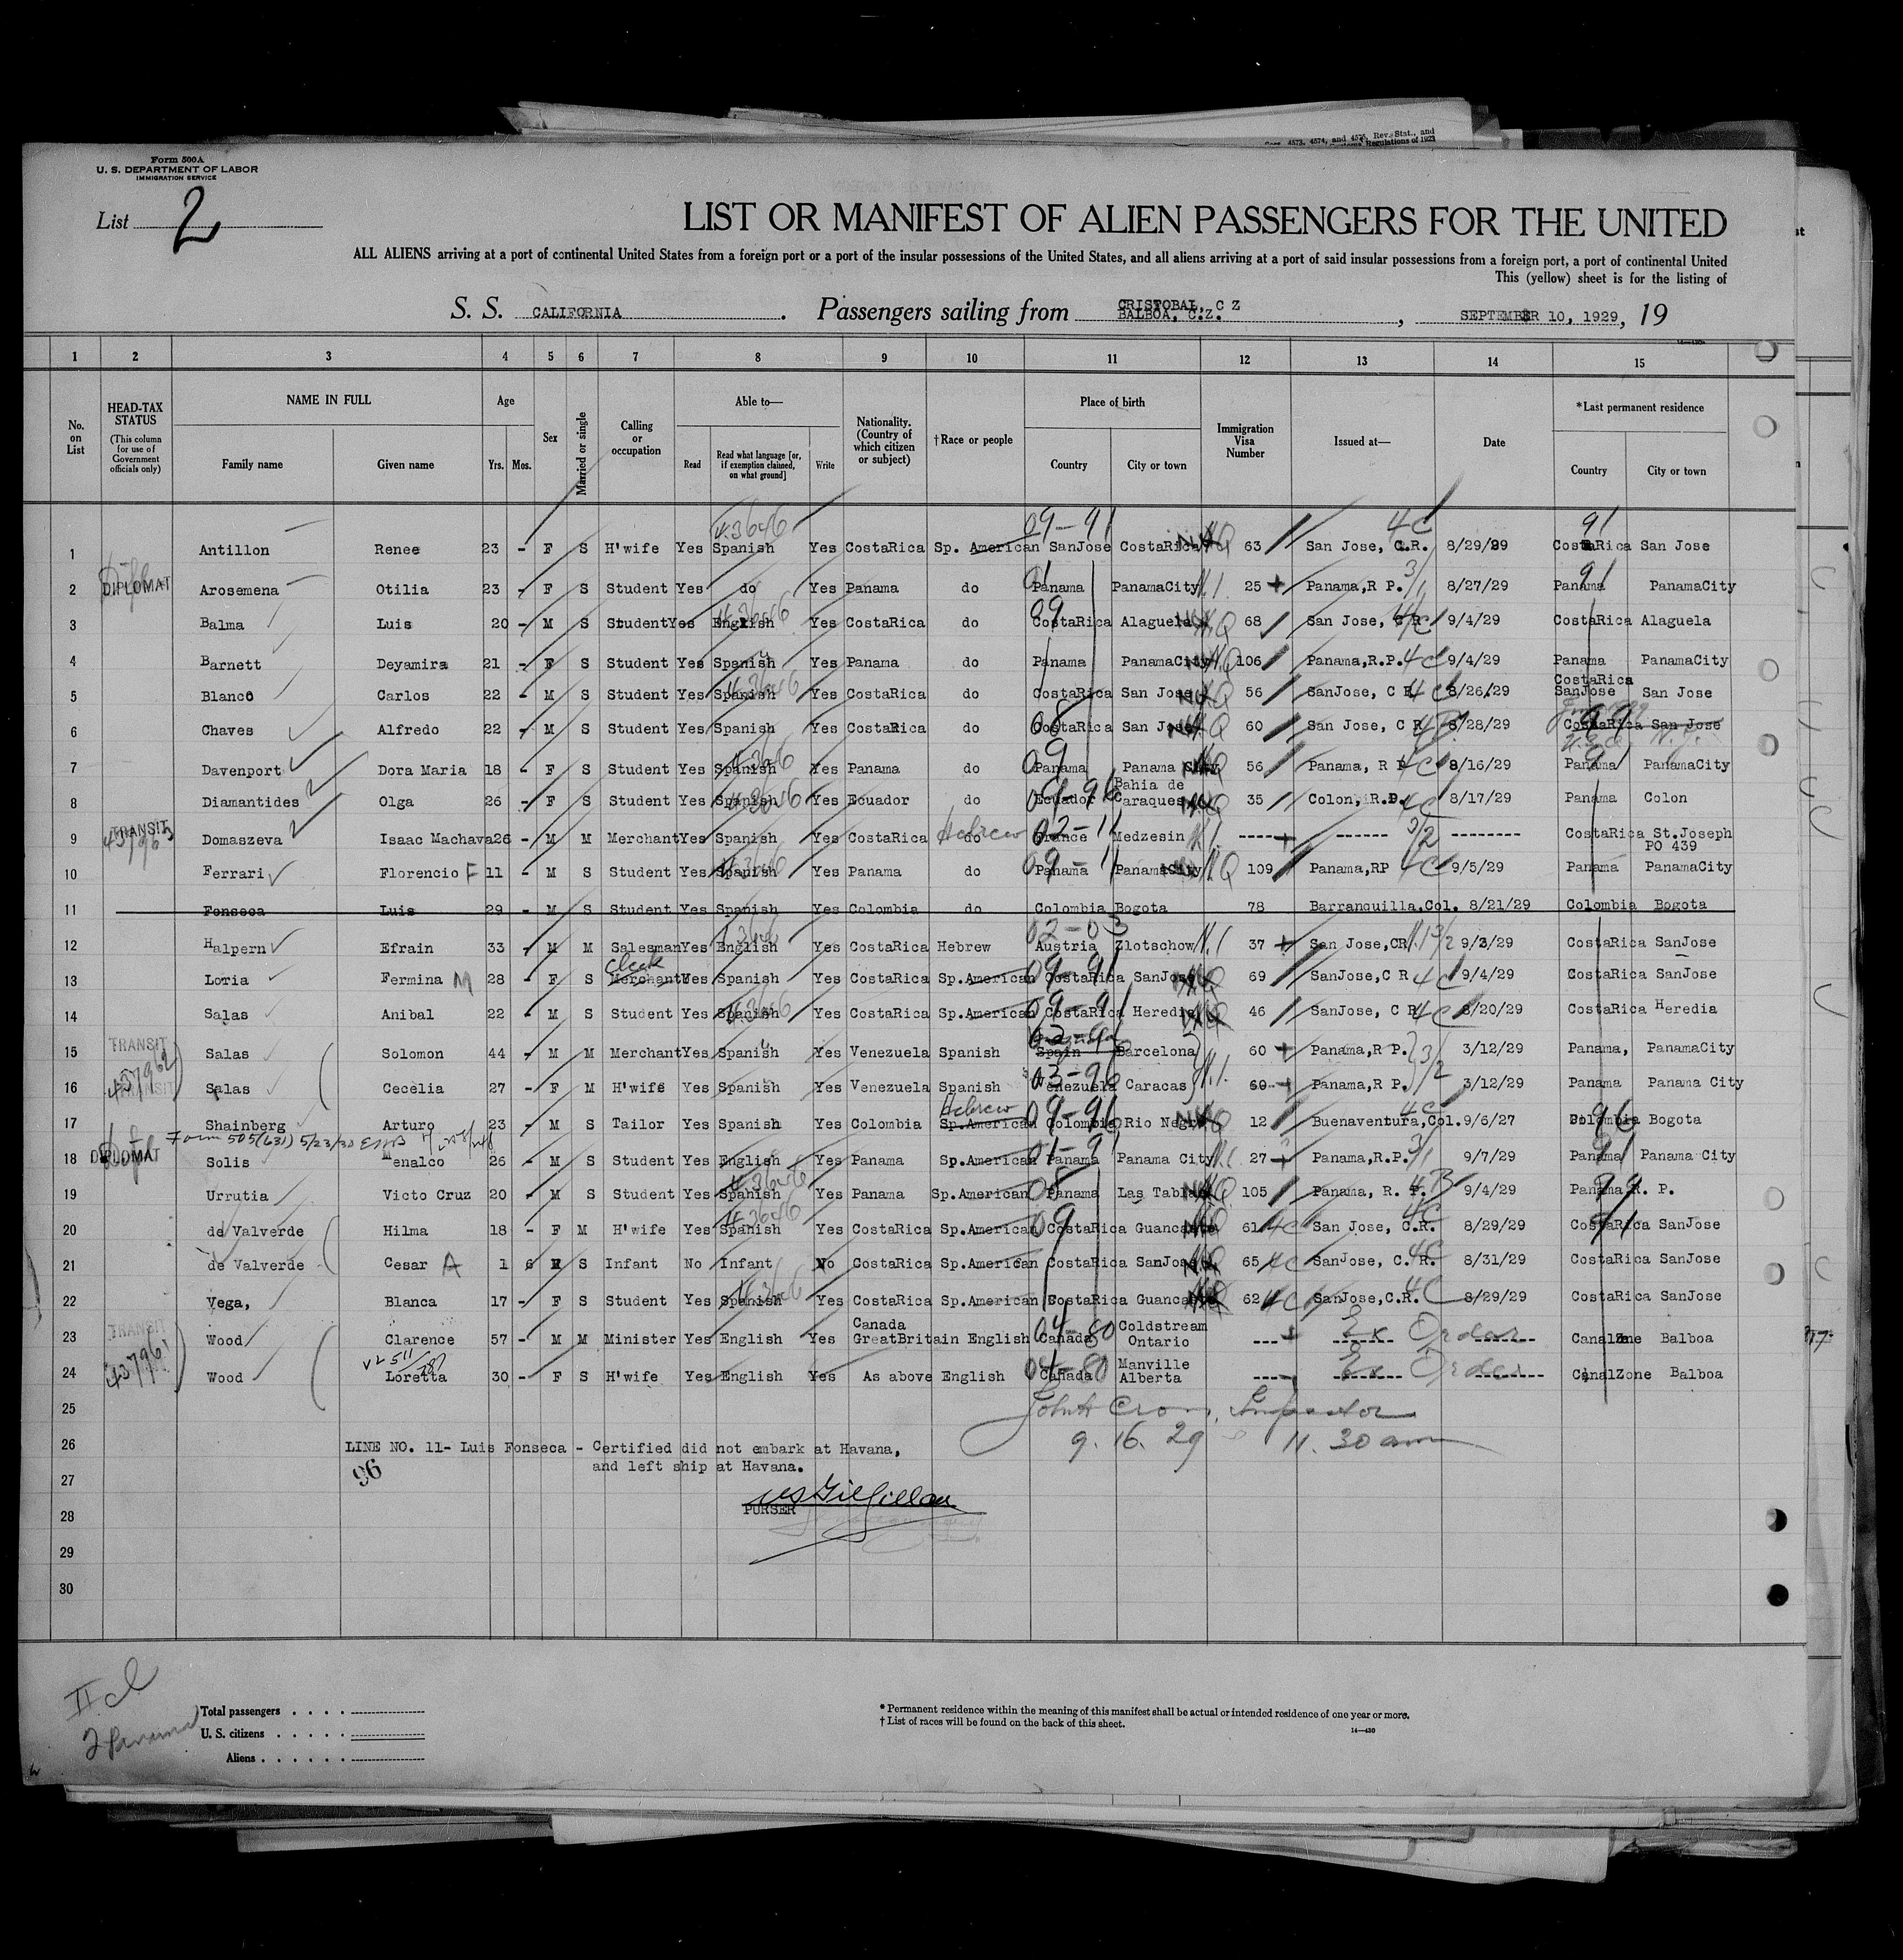 Corr. 4573, 4574, and 4575, Rev. Stat., and
Regulations of 1923
Form 500A
U. S. DEPARTMENT OF LABOR
IMMIGRATION SERVICE
List 2
LIST OR MANIFEST OF ALIEN PASSENGERS FOR THE UNITED
ALL ALIENS arriving at a port of continental United States from a foreign port or a port of the insular possessions of the United States, and all aliens arriving at a port of said insular possessions from a foreign port, a port of continental United
This (yellow) sheet is for the listing of
S. S. CALIFORNIA. Passengers sailing from CRISTOBAL, C Z BALBOA, C.Z., SEPTEMBER 10, 1929, 19
1 2 3 4 5 6 7 8 9 10 11 12 13 14 15
No. on List
HEAD-TAX STATUS (This column for use of Government officials only)
NAME IN FULL Family name Given name
Age Yrs. Mos.
Sex
Married or single
Calling or occupation
Able to— Read Read what language [or, if exemption claimed, on what ground] Write
Nationality. (Country of which citizen or subject)
†Race or people
Place of birth Country City or town
Immigration Visa Number
Issued at—
Date
*Last permanent residence Country City or town
1 Antillon Renee 23 - F S H'wife Yes Spanish Yes CostaRica Sp. American SanJose CostaRica 63 San Jose, C.R. 4C 8/29/29 CostaRica San Jose
2 DIPLOMAT Arosemena Otilia 23 - F S Student Yes do Yes Panama do Panama PanamaCity 25 Panama,R P. 8/27/29 Panama PanamaCity
3 Balma Luis 20 - M S Student Yes English Yes CostaRica do CostaRica Alaguela 68 San Jose, C R 4C 9/4/29 CostaRica Alaguela
4 Barnett Deyamira 21 - F S Student Yes Spanish Yes Panama do Panama PanamaCity 106 Panama,R.P. 4C 9/4/29 Panama PanamaCity
5 Blanco Carlos 22 - M S Student Yes Spanish Yes CostaRica do CostaRica San Jose 56 SanJose, C R 4C 8/26/29 CostaRica SanJose San Jose
6 Chaves Alfredo 22 - M S Student Yes Spanish Yes CostaRica do CostaRica San Jose 60 San Jose, C R 8/28/29 CostaRica San Jose
7 Davenport Dora Maria 18 - F S Student Yes Spanish Yes Panama do Panama Panama City 56 Panama, R P 4C 8/16/29 Panama PanamaCity
8 Diamantides Olga 26 - F S Student Yes Spanish Yes Ecuador do Ecuador Bahia de Caraques 35 Colon, R.P. 4C 8/17/29 Panama Colon
9 TRANSIT Domaszeva Isaac Machava 26 - M M Merchant Yes Spanish Yes CostaRica Hebrew do France Medzesin ----- ------ -------- CostaRica St.Joseph PO 439
10 Ferrari Florencio F 11 - M S Student Yes Spanish Yes Panama do Panama PanamaCity 109 Panama,RP 4C 9/5/29 Panama PanamaCity
11 Fonseca Luis 29 - M S Student Yes Spanish Yes Colombia do Colombia Bogota 78 Barranquilla,Col. 8/21/29 Colombia Bogota
12 Halpern Efrain 33 - M M Salesman Yes English Yes CostaRica Hebrew Austria Zlotschow 37 San Jose,CR 9/3/29 CostaRica SanJose
13 Loria Fermina M 28 - F S Clerk Merchant Yes Spanish Yes CostaRica Sp.American CostaRica SanJose 69 SanJose,C R 4C 9/4/29 CostaRica SanJose
14 Salas Anibal 22 - M S Student Yes Spanish Yes CostaRica Sp.American CostaRica Heredia 46 SanJose, C R 4C 8/20/29 CostaRica Heredia
15 TRANSIT Salas Solomon 44 - M M Merchant Yes Spanish Yes Venezuela Spanish Spain Barcelona 60 Panama,R P. 3/12/29 Panama, PanamaCity
16 TRANSIT 437962 Salas Cecelia 27 - F M H'wife Yes Spanish Yes Venezuela Spanish Venezuela Caracas 60 Panama,R P. 3/12/29 Panama Panama City
17 Shainberg Arturo 23 - M S Tailor Yes Spanish Yes Colombia Hebrew Sp.American Colombia Rio Negro 12 Buenaventura,Col. 4C 9/6/27 Colombia Bogota
Form 505(631) 5/23/30
18 DIPLOMAT Solis Menalco 26 - M S Student Yes English Yes Panama Sp.American Panama Panama City 27 Panama,R.P. 9/7/29 Panama Panama City
19 Urrutia Victo Cruz 20 - M S Student Yes Spanish Yes Panama Sp.American Panama Las Tablas 105 Panama, R. P. 9/4/29 Panama,R. P.
20 de Valverde Hilma 18 - F M H'wife Yes Spanish Yes CostaRica Sp.American CostaRica Guancaste 61 4C San Jose, C.R. 4C 8/29/29 CostaRica SanJose
21 de Valverde Cesar A 1 6 M S Infant No Infant No CostaRica Sp.American CostaRica SanJose 65 4C SanJose, C. R. 4C 8/31/29 CostaRica SanJose
22 Vega, Blanca 17 - F S Student Yes Spanish Yes CostaRica Sp.American CostaRica Guancaste 62 4C SanJose,C.R. 4C 8/29/29 CostaRica SanJose
23 TRANSIT Wood Clarence 57 - M M Minister Yes English Yes Canada GreatBritain English Canada Coldstream Ontario ---- Ex Order CanalZone Balboa
24 437961 Wood Loretta 30 - F S H'wife Yes English Yes As above English Canada Manville Alberta ---- Ex Order CanalZone Balboa
25 Inspector
26 LINE NO. 11- Luis Fonseca - Certified did not embark at Havana, 9. 16. 29 11.30 am
and left ship at Havana.
96
27
28 PURSER
29
30
II cl
2 Panama
Total passengers
U. S. citizens
Aliens
* Permanent residence within the meaning of this manifest shall be actual or intended residence of one year or more.
† List of races will be found on the back of this sheet.
14—430